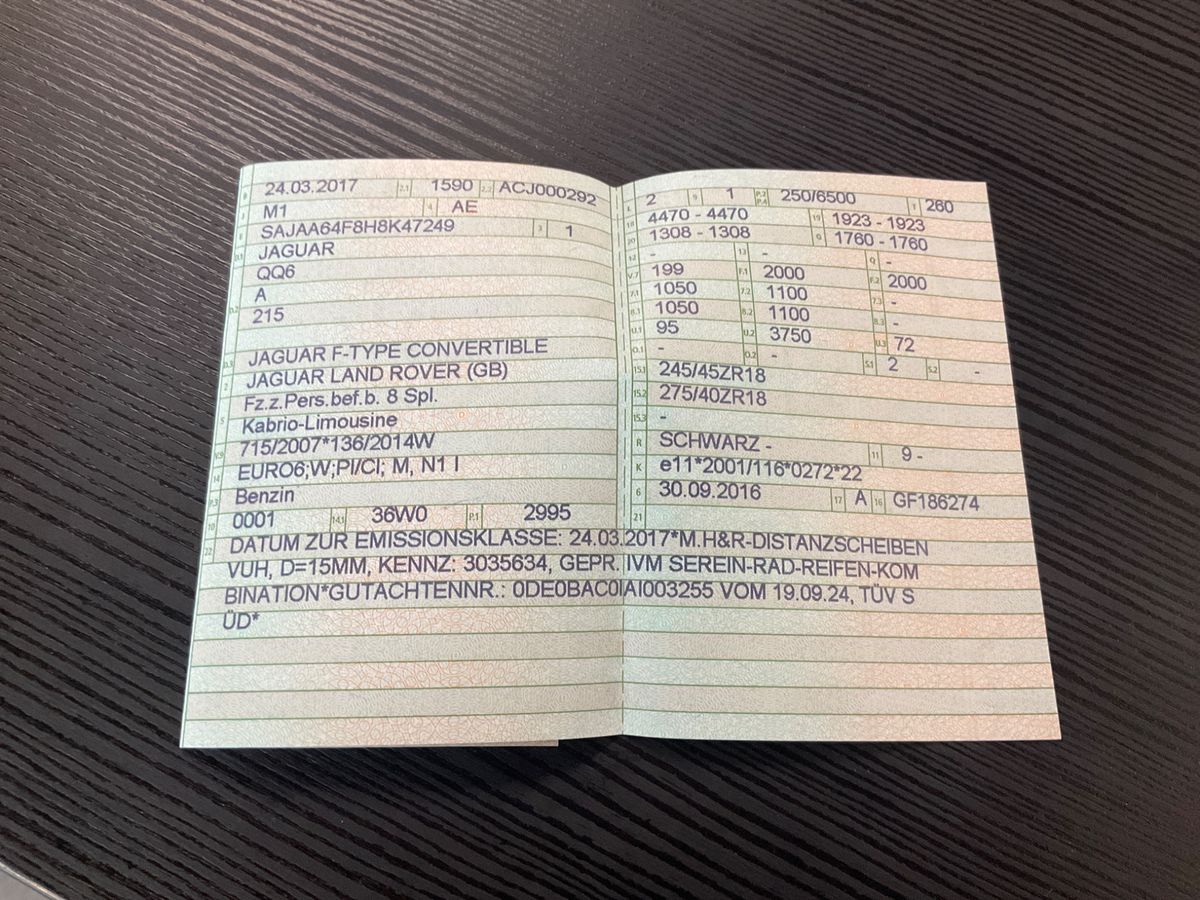 B 24.03.2017 2.1 1590 2.2 ACJ000292
J M1 4 AE
E SAJAA64F8H8K47249 3 1
D.1 JAGUAR
QQ6
A
D.2 215
D.3 JAGUAR F-TYPE CONVERTIBLE
2 JAGUAR LAND ROVER (GB)
Fz.z.Pers.bef.b. 8 Spl.
5 Kabrio-Limousine
V.9 715/2007*136/2014W
14 EURO6;W;PI/CI; M, N1 I
P.3 Benzin
10 0001 14.1 36W0 P.1 2995
L 2 9 1 P.2 P.4 250/6500 T 260
18 4470 - 4470 19 1923 - 1923
20 1308 - 1308 G 1760 - 1760
12 - 13 - Q -
V.7 199 F.1 2000 F.2 2000
7.1 1050 7.2 1100 7.3 -
8.1 1050 8.2 1100 8.3 -
U.1 95 U.2 3750 U.3 72
O.1 - O.2 - S.1 2 S.2 -
15.1 245/45ZR18
15.2 275/40ZR18
15.3 -
R SCHWARZ - 11 9 -
K e11*2001/116*0272*22
6 30.09.2016 17 A 16 GF186274
21
22 DATUM ZUR EMISSIONSKLASSE: 24.03.2017*M.H&R-DISTANZSCHEIBEN
VUH, D=15MM, KENNZ: 3035634, GEPR. IVM SEREIN-RAD-REIFEN-KOM
BINATION*GUTACHTENNR.: 0DE0BAC0IAI003255 VOM 19.09.24, TÜV S
ÜD*